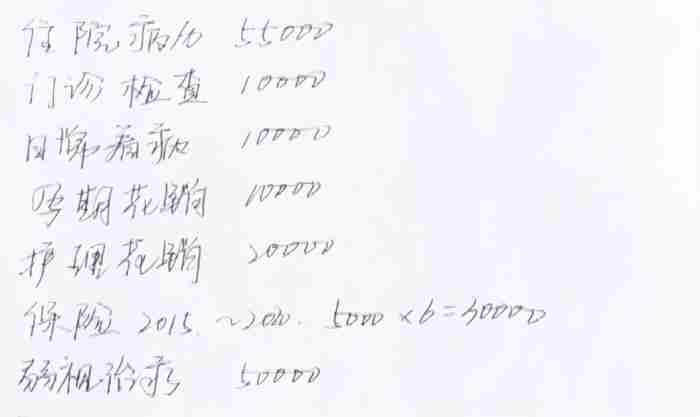 住院病人 55000
门诊检查 10000
日常看病 10000
后期花销 10000
护理花销 20000
保险 2015 ~2020. 5000 ×6=30000
弱视治疗 50000